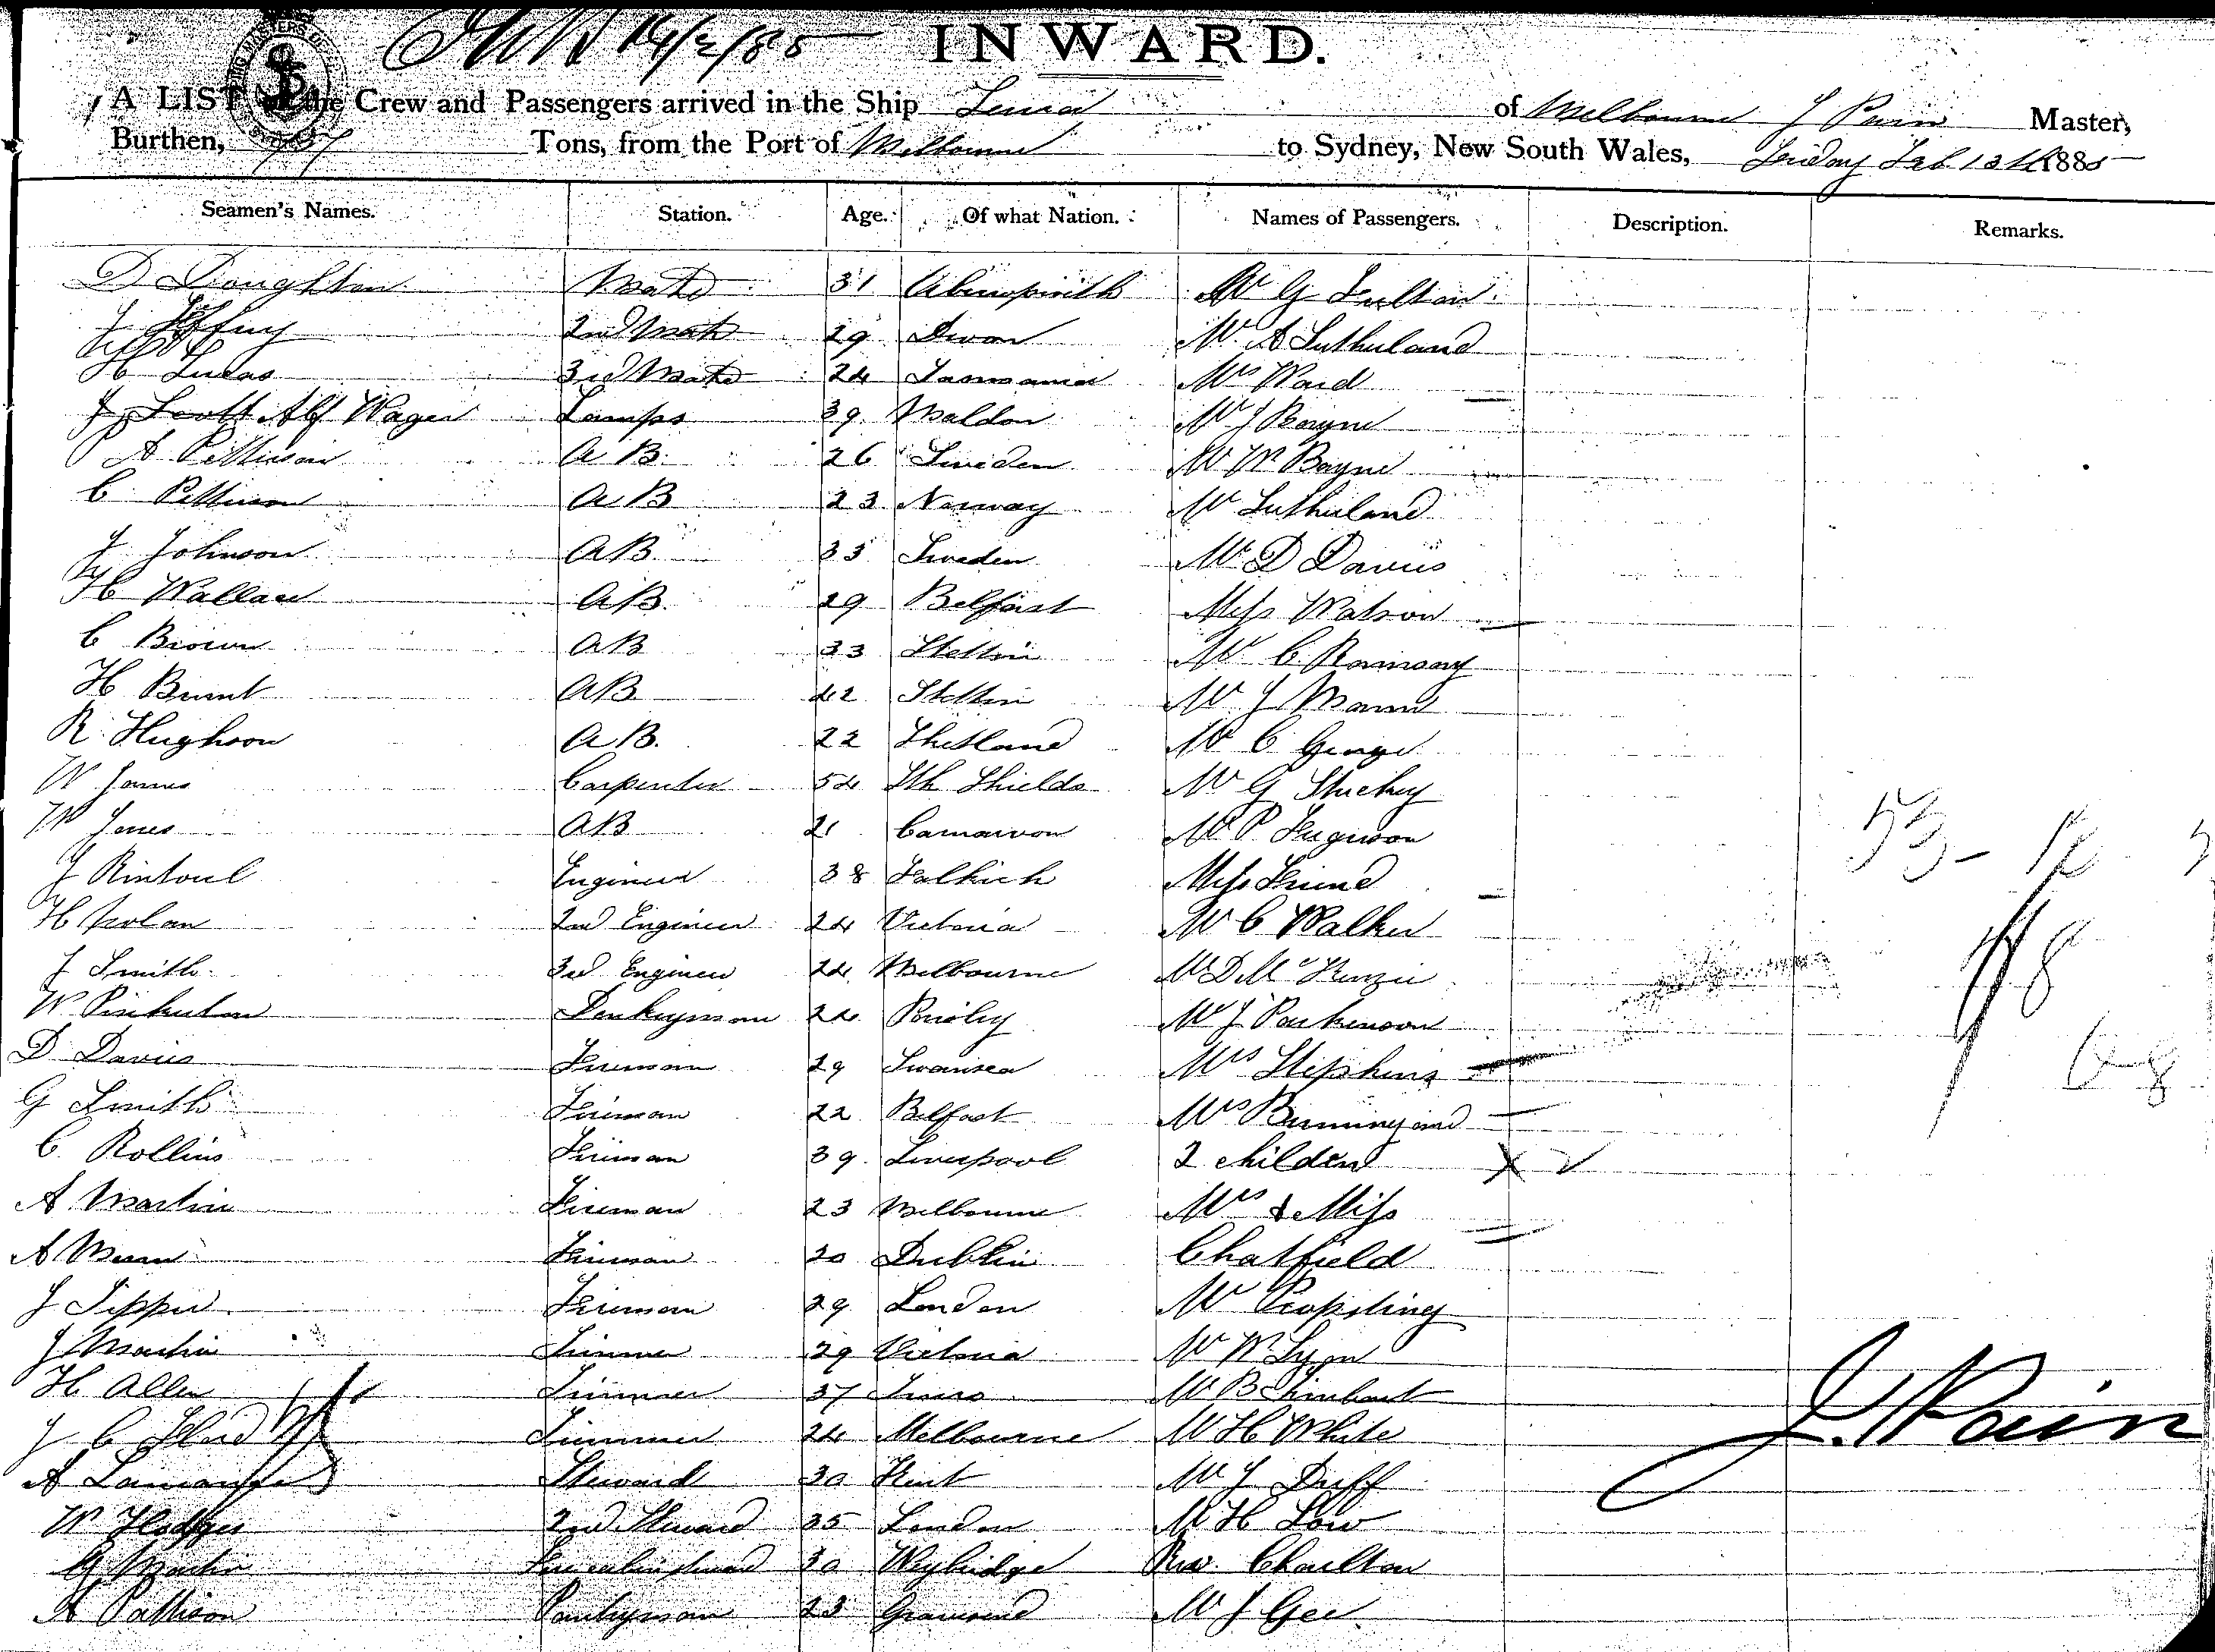 14/2/85 INWARD.
A LIST of the Crew and Passengers arrived in the Ship of Melbourne J Pain Master,
Burthen, Tons, from the Port of Melbourne to Sydney, New South Wales, Friday Feb 13th 1885
Seamen's Names. Station. Age. Of what Nation. Names of Passengers. Description. Remarks.
D Doughton Mate 31 Mr G Fulton
J Jeffery 2nd Mate 29 Devon Mr A Sutherland
H Lucas 3rd Mate 24 Tasmania Mrs Ward
J Scott Alf Wager Lamps 39 Maldon Mr J Bayne
A Petterson A B 26 Sweden Mr W Bayne
C Petterson A B 23 Norway Mr Sutherland
J Johnson A B 33 Sweden Mr D Davies
H Wallace A B 29 Belfast Miss Watson
C Brown A B 33 Stettin Mr C Ramsay
H Brunt A B 42 Stettin Mr J Mann
R Hughson A B. 22 Shetland Mr C George
W James Carpenter 54 Sth Shields Mr G Stuckey
W Jones A B 21 Carnarvon Mr P Ferguson
J Rintoul Engineer 38 Falkirk Miss Friend
H Nolan 2nd Engineer 24 Victoria Mr C Walker
J Smith 3rd Engineer 24 Melbourne Mr D McKenzie
W Pinkerton Donkeyman 24 Mr J Parkinson
D Davies Fireman 29 Swansea Mrs Stephens
G Smith Fireman 22 Belfast Mrs Bunning and
C. Rollins Fireman 39 Liverpool 2 children
A Martin Fireman 23 Melbourne Mrs & Miss
A Munn Fireman 20 Dublin Chatfield
J Tipper Fireman 29 London Mr Propsting
J Martin Trimmer 29 Victoria Mr W Lyon
H Allen Trimmer 37 Truro Mr B
J C Trimmer 24 Melbourne Mr H White
A Steward 30 Kent Mr J Duff
W Hodges 2nd Steward 25 London Mr H Low
G Martin Forecabin Steward 30 Weybridge Rev. Charlton
A Pattison Pantryman 23 Gravesend Mr J Gee
J. Pain